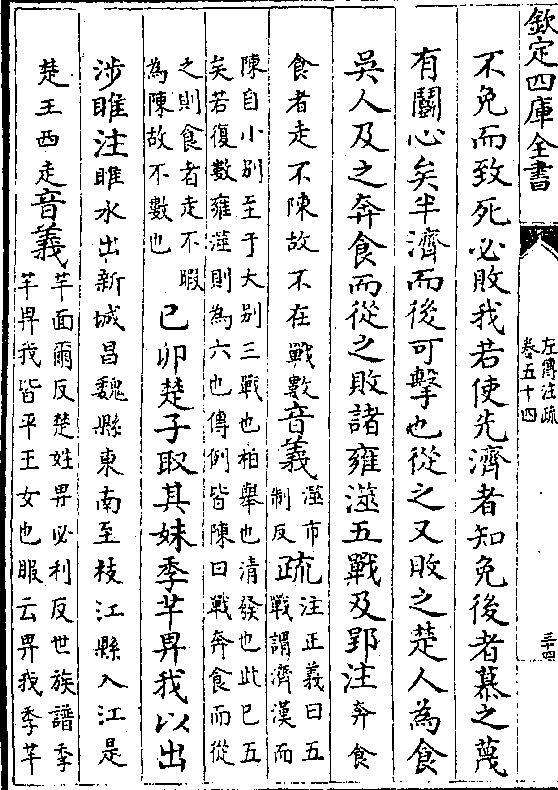 欽定四庫全書
左傳注疏
卷五十四
三十四
不免而致死必敗我若使先濟者知免後者慕之蔑
有鬭心矣半濟而後可擊也從之又敗之楚人為食
吳人及之奔食而從之敗諸雍澨五戰及郢注奔食
食者走不陳故不在戰數音義澨市制反疏注正義曰五戰謂濟漢而
陳自小别至于大别三戰也柏舉也清發也此已五
矣若復數雍澨則為六也傳例皆陳曰戰奔食而從
之則食者走不暇為陳故不數也己卯楚子取其妹季芊畀我以出
涉睢注睢水出新城昌魏縣東南至枝江縣入江是
楚王西走音義芊面爾反楚姓畀必利反世族譜季芊畀我皆平王女也服云畀我季芊